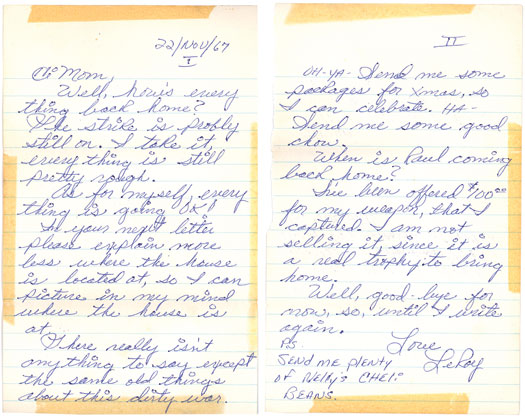 22/NOV/67
I
Hi Mom,
Well, how's every
thing back home?
The strike is probly
still on. I take it,
every thing is still
pretty rough.
As for myself, every
thing is going O.K.!
In your next letter
please explain more
less where the house
is located at, so I can
picture in my mind
where the house is
at.
There really isn't
anything to say except
the same old things
about this dirty war.
II
OH-YA- Send me some
packages for Xmas, so
I can celebrate. HA-
Send me some good
chow.
When is Paul coming
back home?
I've been offered $100
for my weapon, that I
captured. I am not
selling it, since it is
a real trophy to bring
home.
Well, good-bye for
now, so, until I write
again.
Love
LeRoy
PS
SEND ME PLENTY
OF CHILI
BEANS.